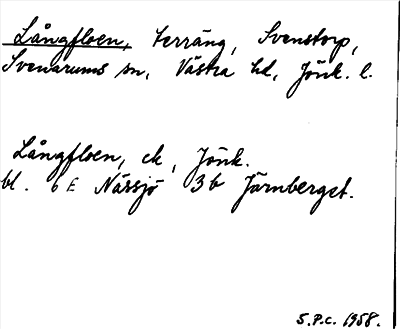 Långfloen, terräng, Svenstorp,
Svenarums sn, Västra hd, Jönk. l.
Långfloen, ek, Jönk.
bl. 6E Nässjö 3b Järnberget.
S.P.C. 1958.